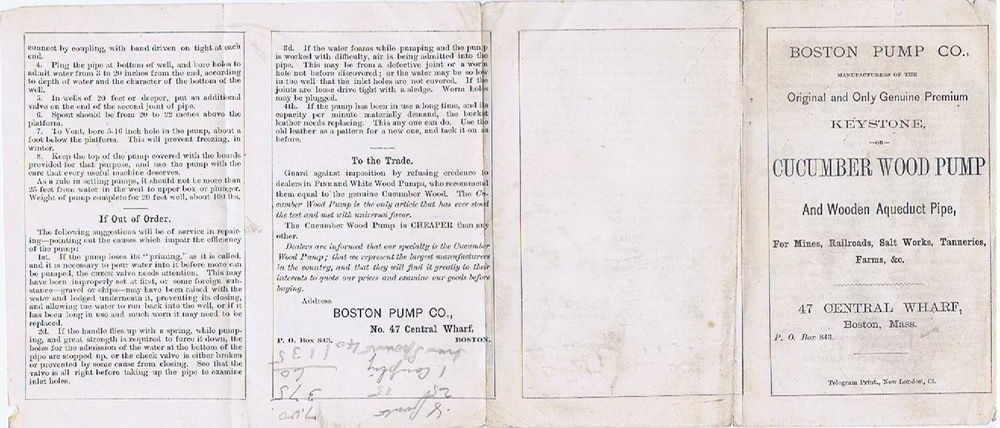 connect by coupling, with band driven on tight at each
end.
4. Plug the pipe at bottom of well, and bore holes to
admit water from 3 to 20 inches from the end, according
to depth of water and the character of the bottom of the
well.
5. In wells of 20 feet or deeper, put an additional
valve on the end of the second joint of pipe.
6. Spout should be from 20 to 22 inches above the
platform.
7. To Vent, bore 5-16 inch hole in the pump, about a
foot below the platform. This will prevent freezing, in
winter.
8. Keep the top of the pump covered with the boards
provided for that purpose, and use the pump with the
care that every useful machine deserves.
As a rule in setting pumps, it should not be more than
25 feet from water in the well to upper box or plunger.
Weight of pump complete for 20 feet well, about 100 lbs.
If Out of Order.
The following suggestions will be of service in repair-
ing—pointing out the causes which impair the efficiency
of the pump:
1st. If the pump loses its "priming," as it is called,
and it is necessary to pour water into it before more can
be pumped, the CHECK valve needs attention. This may
have been improperly set at first, or some foreign sub-
stance—gravel or chips—may have been raised with the
water and lodged underneath it, preventing its closing,
and allowing the water to run back into the well, or if it
has been long in use and much worn it may need to be
replaced.
2d. If the handle flies up with a spring, while pump-
ing, and great strength is required to force it down, the
holes for the admission of the water at the bottom of the
pipe are stopped up, or the check valve is either broken
or prevented by some cause from closing. See that the
valve is all right before taking up the pipe to examine
inlet holes.
3d. If the water foams while pumping and the pump
is worked with difficulty, air is being admitted into the
pipe. This may be from a defective joint or a worm
hole not before discovered; or the water may be so low
in the well that the inlet holes are not covered. If the
joints are loose drive tight with a sledge. Worm holes
may be plugged.
4th. If the pump has been in use a long time, and its
capacity per minute materially demand, the bucket
leather needs replacing. This any one can do. Use the
old leather as a pattern for a new one, and tack it on as
before.
To the Trade.
Guard against imposition by refusing credence to
dealers in PINE and White Wood Pumps, who recommend
them equal to the genuine Cucumber Wood. The Cu-
cumber Wood Pump is the only article that has ever stood
the test and met with universal favor.
The Cucumber Wood Pump is CHEAPER than any
other.
Dealers are informed that our specialty is the Cucumber
Wood Pump; that we represent the largest manufacturers
in the country, and that they will find it greatly to their
interests to quote our prices and examine our goods before
buying.
Address
BOSTON PUMP CO.,
No. 47 Central Wharf,
P. O. Box 843. BOSTON.
7.00
375
60
1135
BOSTON PUMP CO.,
MANUFACTURERS OF THE
Original and Only Genuine Premium
KEYSTONE,
—OR—
CUCUMBER WOOD PUMP
And Wooden Aqueduct Pipe,
For Mines, Railroads, Salt Works, Tanneries,
Farms, &c.
47 CENTRAL WHARF,
Boston, Mass.
P. O. Box 843.
Telegram Print., New London, Ct.